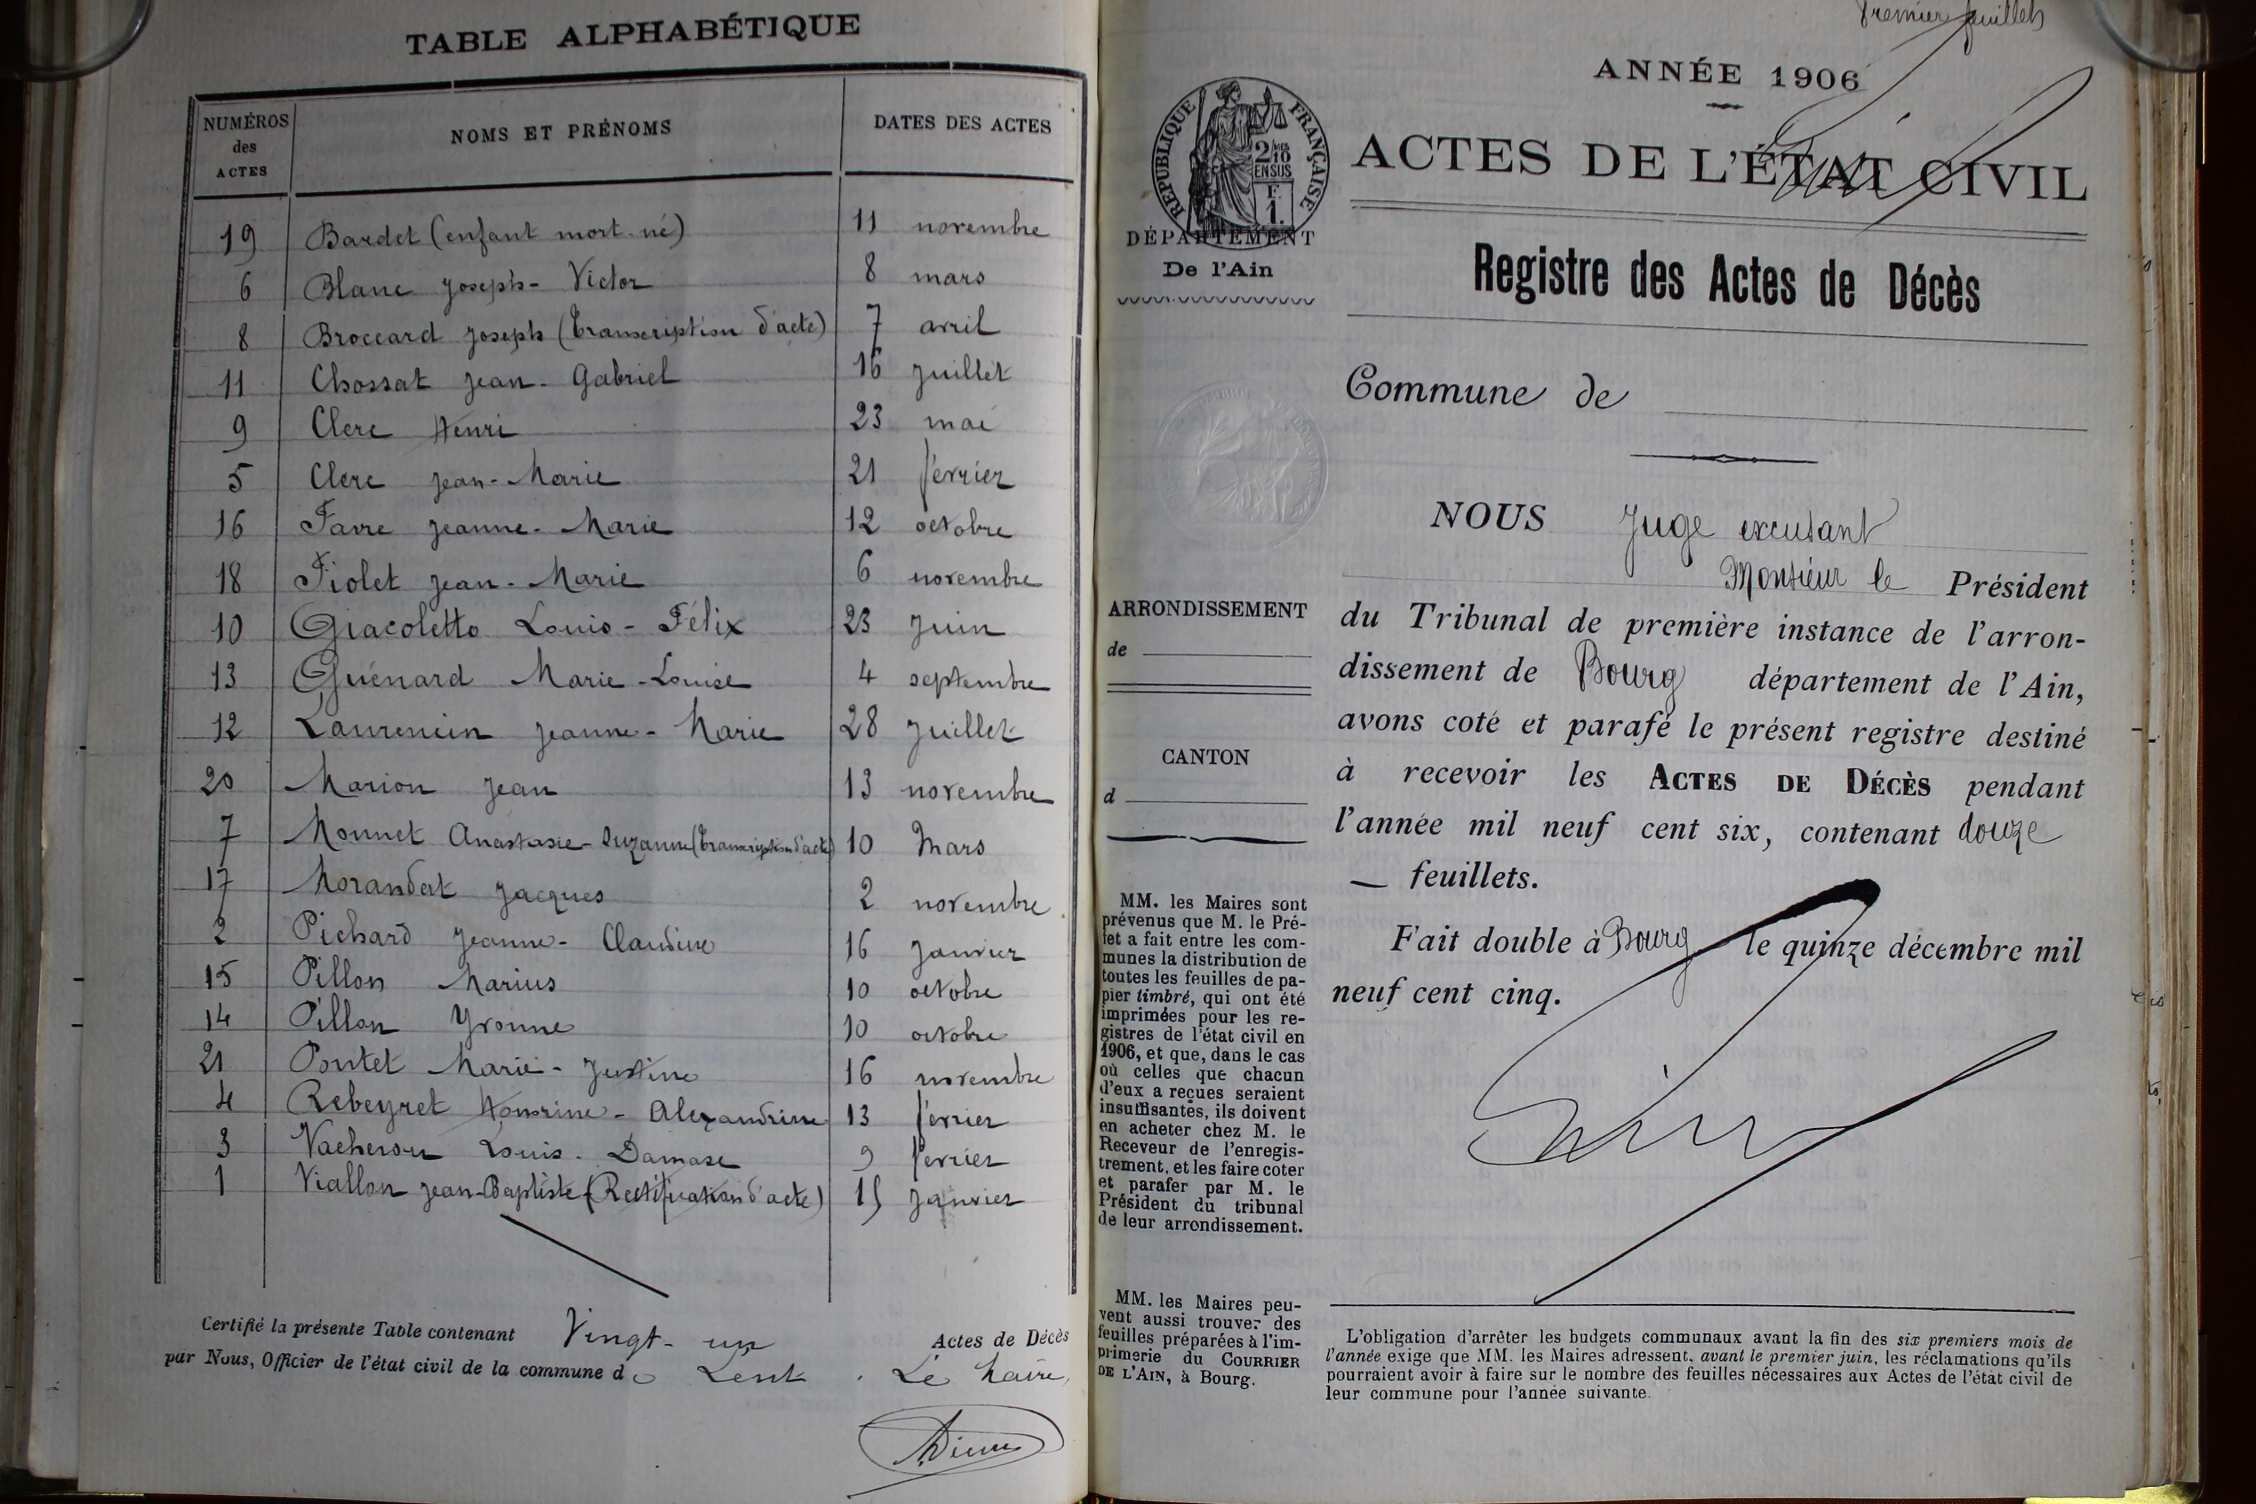 TABLE ALPHABÉTIQUE
NUMÉROS des ACTES NOMS ET PRÉNOMS DATES DES ACTES
19 Bardet (enfant mort-né) 11 novembre
6 Blanc Joseph-Victor 8 mars
8 Broccard Joseph (Transcription d'acte) 7 avril
11 Chossat Jean-Gabriel 16 juillet
9 Clerc Henri 23 mai
5 Clerc Jean-Marie 21 février
16 Favre Jeanne-Marie 12 octobre
18 Fiolet Jean-Marie 6 novembre
10 Giacoletto Louis-Félix 23 juin
13 Guénard Marie-Louise 4 septembre
12 Laurencin Jeanne-Marie 28 juillet
20 Marion Jean 13 novembre
7 Monnet Anastasie-Suzanne (Transcription d'acte) 10 Mars
17 Morandat Jacques 2 novembre
2 Pichard Jeanne-Claudine 16 janvier
15 Pillon Marius 10 octobre
14 Pillon Yvonne 10 octobre
21 Pontet Marie-Justine 16 novembre
4 Rebeyret Honorine-Alexandrine 13 février
3 Vacheron Louis-Damase 9 février
1 Viallon Jean-Baptiste (Rectification d'acte) 15 janvier
Certifié la présente Table contenant Vingt-un Actes de Décès
par Nous, Officier de l'état civil de la commune de Lent. Le Maire,
Premier feuillet
ANNÉE 1906
ACTES DE L'ÉTAT CIVIL
RÉPUBLIQUE FRANÇAISE
2/10 EN SUS
F. 1.
DÉPARTEMENT
De l'Ain
Registre des Actes de Décès
Commune de
NOUS Juge excusant
Monsieur le Président
du Tribunal de première instance de l'arron-
dissement de Bourg département de l'Ain,
avons coté et parafé le présent registre destiné
à recevoir les ACTES DE DÉCÈS pendant
l'année mil neuf cent six, contenant douze
feuillets.
Fait double à Bourg le quinze décembre mil
neuf cent cinq.
ARRONDISSEMENT
de
CANTON
d
MM. les Maires sont
prévenus que M. le Pré-
fet a fait entre les com-
munes la distribution de
toutes les feuilles de pa-
pier timbré, qui ont été
imprimées pour les re-
gistres de l'état civil en
1906, et que, dans le cas
où celles que chacun
d'eux a reçues seraient
insuffisantes, ils doivent
en acheter chez M. le
Receveur de l'enregis-
trement, et les faire coter
et parafer par M. le
Président du tribunal
de leur arrondissement.
MM. les Maires peu-
vent aussi trouver des
feuilles préparées à l'im-
primerie du COURRIER
DE L'AIN, à Bourg.
L'obligation d'arrêter les budgets communaux avant la fin des six premiers mois de
l'année exige que MM. les Maires adressent, avant le premier juin, les réclamations qu'ils
pourraient avoir à faire sur le nombre des feuilles nécessaires aux Actes de l'état civil de
leur commune pour l'année suivante.